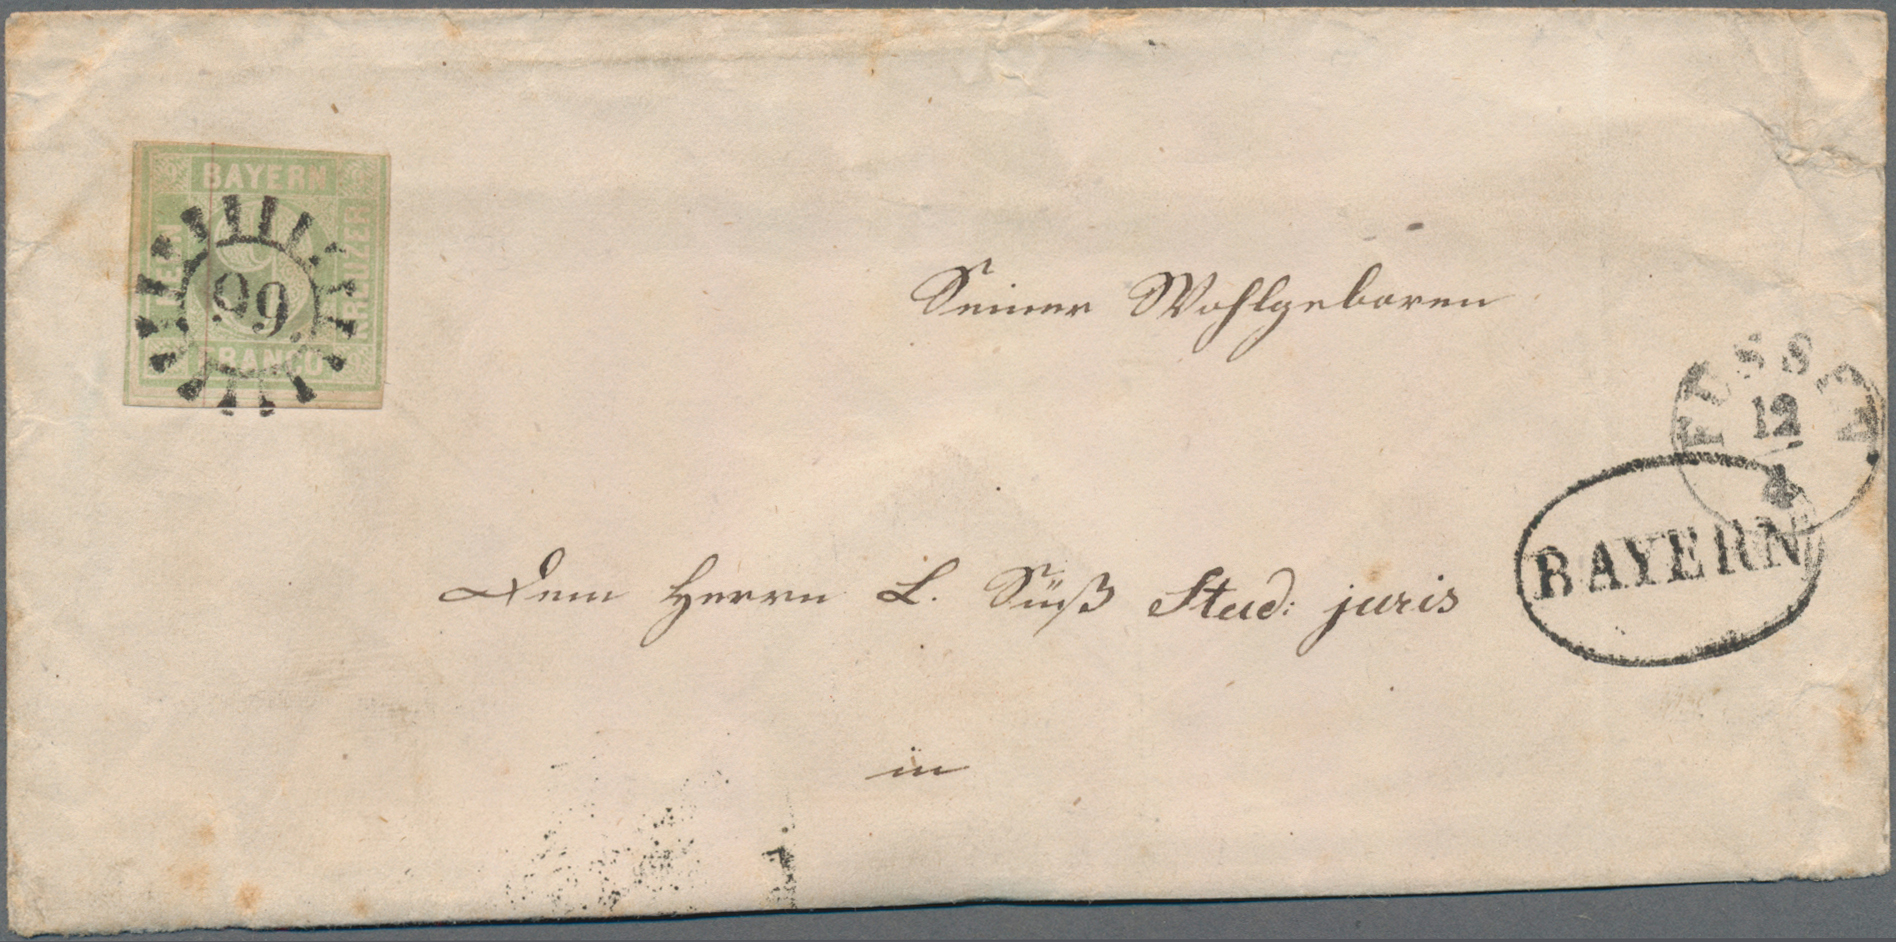 BAYERN
NEUN
KREUZER
FRANCO
99
Seiner Wohlgeboren
FÜSSEN
12
4
BAYERN
Dem Herrn L. Süß Stud: juris
in